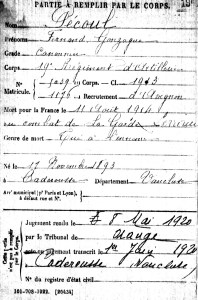 PARTIE À REMPLIR PAR LE CORPS.
Nom Pécout
Prénoms Fernand Gonzague
Grade Canonnier
Corps 19e Régiment d'Artillerie
N° 7029 au Corps. — Cl. 1913
Matricule. 1176 au Recrutement d'Avignon
Mort pour la France le 11 Août 1914
au combat de La Garde
Genre de mort Tué à l'ennemi
Né le 17 Novembre 1893
à Caderousse Département Vaucluse
Arr municipal (pr Paris et Lyon),
à défaut rue et N°.
Jugement rendu le 8 Mai 1920
par le Tribunal de Orange
jugement transcrit le 1er Juin 1920
Caderousse Vaucluse
N° du registre d'état civil